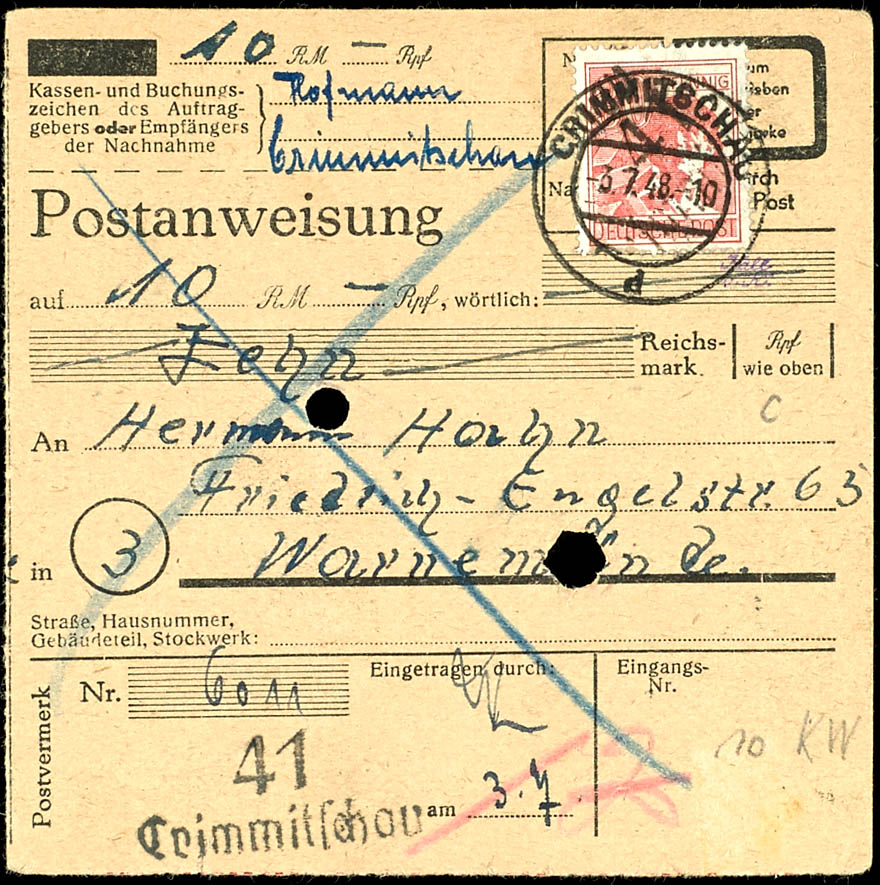 10 RM — Rpf
Kassen- und Buchungs-
zeichen des Auftrag-
gebers oder Empfängers
der Nachnahme
Hofmann
Crimmitschau
CRIMMITSCHAU
-3.7.48.-10
d
DEUTSCHE POST
Post
Postanweisung
auf 10 RM — Rpf, wörtlich:
Zehn
Reichs-
mark.
Rpf
wie oben
C
An Hermann Hahn
Friedrich-Engelstr. 63
in 3 Warnemünde.
Straße, Hausnummer,
Gebäudeteil, Stockwerk:
Postvermerk
Nr. 6011
Eingetragen durch:
Eingangs-
Nr.
10 KW
41
Crimmitschau
am 3.7